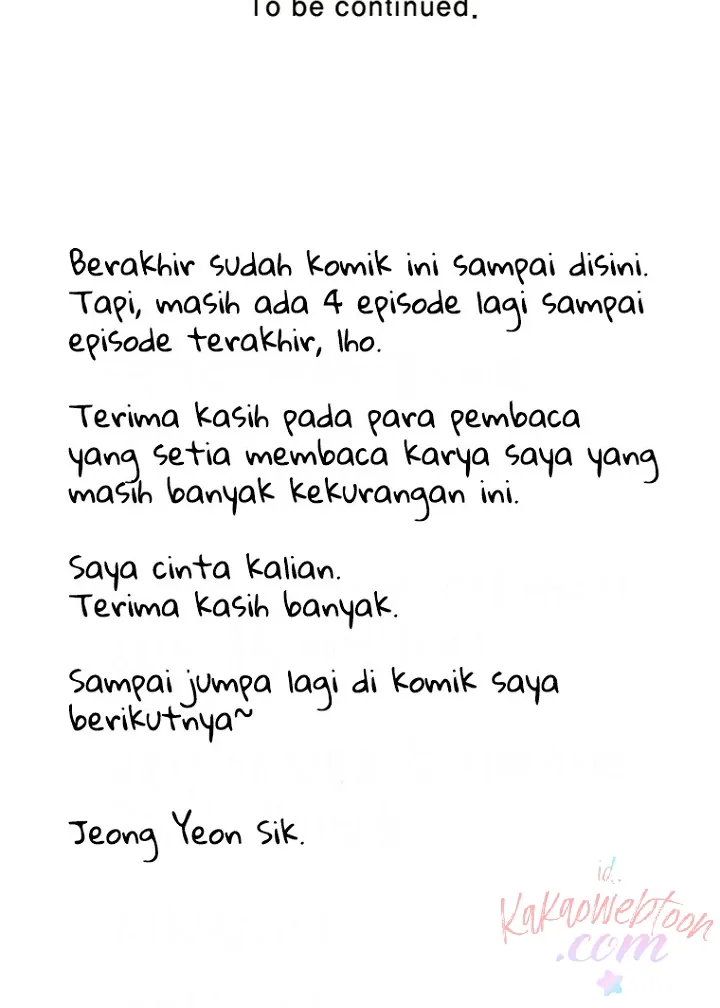 To be continued.
Berakhir sudah komik ini sampai disini.
Tapi, masih ada 4 episode lagi sampai
episode terakhir, lho.
Terima kasih pada para pembaca
yang setia membaca karya saya yang
masih banyak kekurangan ini.
Saya cinta kalian.
Terima kasih banyak.
Sampai jumpa lagi di komik saya
berikutnya~
Jeong Yeon Sik.
id.
kakaowebtoon
.com